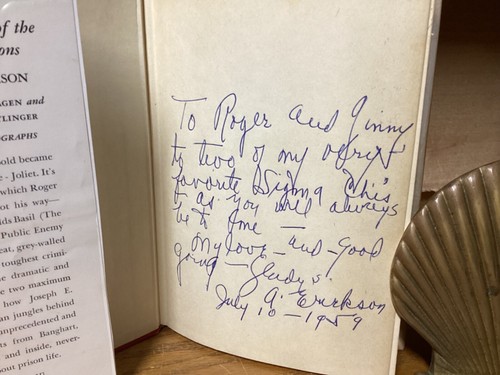 of the
ons
SON
AGEN and
TLINGER
OGRAPHS
old became
- Joliet. It's
which Roger
ot his way—
ids Basil (The
Public Enemy
eat, grey-walled
toughest crimi-
e dramatic and
e two maximum
how Joseph E.
an jungles behind
unprecedented and
ts from Banghart,
and inside, never-
out prison life.
To Roger and Ginny
to two of my very
favorite Sigma Chi's
as you will always
be to me —
My love — and — good
going — Gladys.
A. Erickson
July 10 — 1959